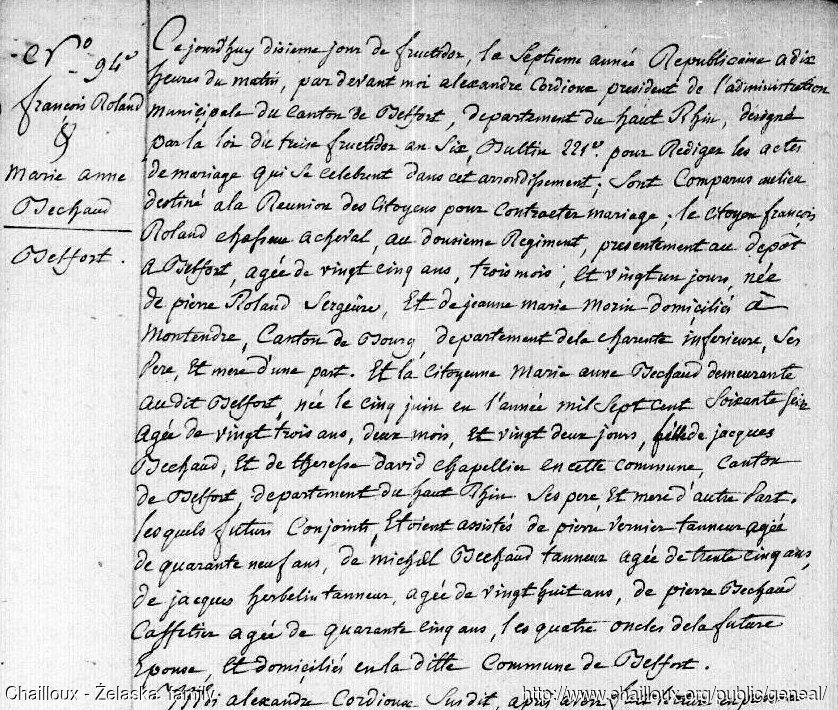 N.° 94.e
françois Roland
&
Marie anne
Bechaud
Belfort.
Cejourd'huy dixieme jour de fructidor, la Septieme année Republicaine a dix
heures du matin, par devant moi alexandre Cordioux president de l'administration
Municipale du Canton de Belfort, departement du haut Rhin, designé
par la loi du treize fructidor an Six, Bultin 221e. pour Rediger les actes
de mariage qui se celebrent dans cet arrondissement; Sont Comparus au lieu
destiné a la Reunion des Citoyens pour Contracter mariage; le Citoyen françois
Roland chasseur a cheval, au dousieme Regiment, presentement au depôt
a Belfort, agée de vingt cinq ans, trois mois, et vingt un jours, née
de pierre Roland Sergeure, Et de jeanne marie Morin domiciliés à
Montendre, Canton de Bourg, departement dela charente inferieure, Ses
Pere, Et mere d'une part. Et la Citoyenne Marie anne Bechaud demeurante
audit Belfort, née le cinq juin en l'année mil Sept Cent Soixante Seize
agée de vingt trois ans, deux mois, Et vingt deux jours, fille de jacques
Bechaud, Et de theresse david chapellier en cette commune, Canton
de Belfort, departement du haut Rhin Ses pere, Et mere d'autre Part.
lesquels futurs Conjoints, Etoient assistés de pierre vernier tanneur agée
de quarante neuf ans, de michel Bechaud tanneur agée de trente cinq ans,
de jacques herbelin tanneur, agée de vingt huit ans, de pierre Bechaud
Caffetier agée de quarante cinq ans, les quatre oncles dela future
Epouse, Et domiciliés en la ditte Commune de Belfort.
alexandre Cordioux Susdit, après avoir fait
Chailloux - Żelaska family
http://www.chailloux.org/public/geneal/